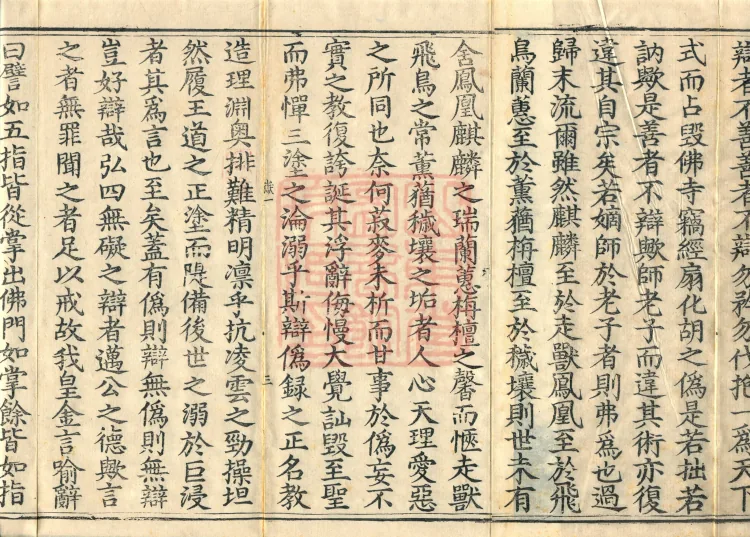 辯者不善善者不辯勿矜勿伐抱一爲天下
式而占毀佛寺竊經扇化胡之僞是若拙若
訥歟是善者不辯歟師老子而違其術亦復
違其自宗矣若嫡師於老子者則弗爲也過
歸末流爾雖然麒麟至於走獸鳳凰至於飛
鳥蘭蕙至於薰蕕栴檀至於穢壤則世未有
舍鳳凰麒麟之瑞蘭蕙栴檀之馨而愜走獸
飛鳥之常薰蕕穢壤之垢者人心天理愛惡
之所同也奈何菽麥未析而甘事於僞妄不
實之教復誇誕其浮辭侮慢大覺訕毀至聖
而弗憚三塗之淪溺乎斯辯僞録之正名教
造理淵奥排難精明凛乎抗凌雲之勁操坦
然履王道之正塗而隄備後世之溺於巨浸
者其爲言也至矣蓋有僞則辯無僞則無辯
豈好辯哉弘四無礙之辯者邁公之德歟言
之者無罪聞之者足以戒故我皇金言喻辭
曰譬如五指皆從掌出佛門如掌餘皆如指
三